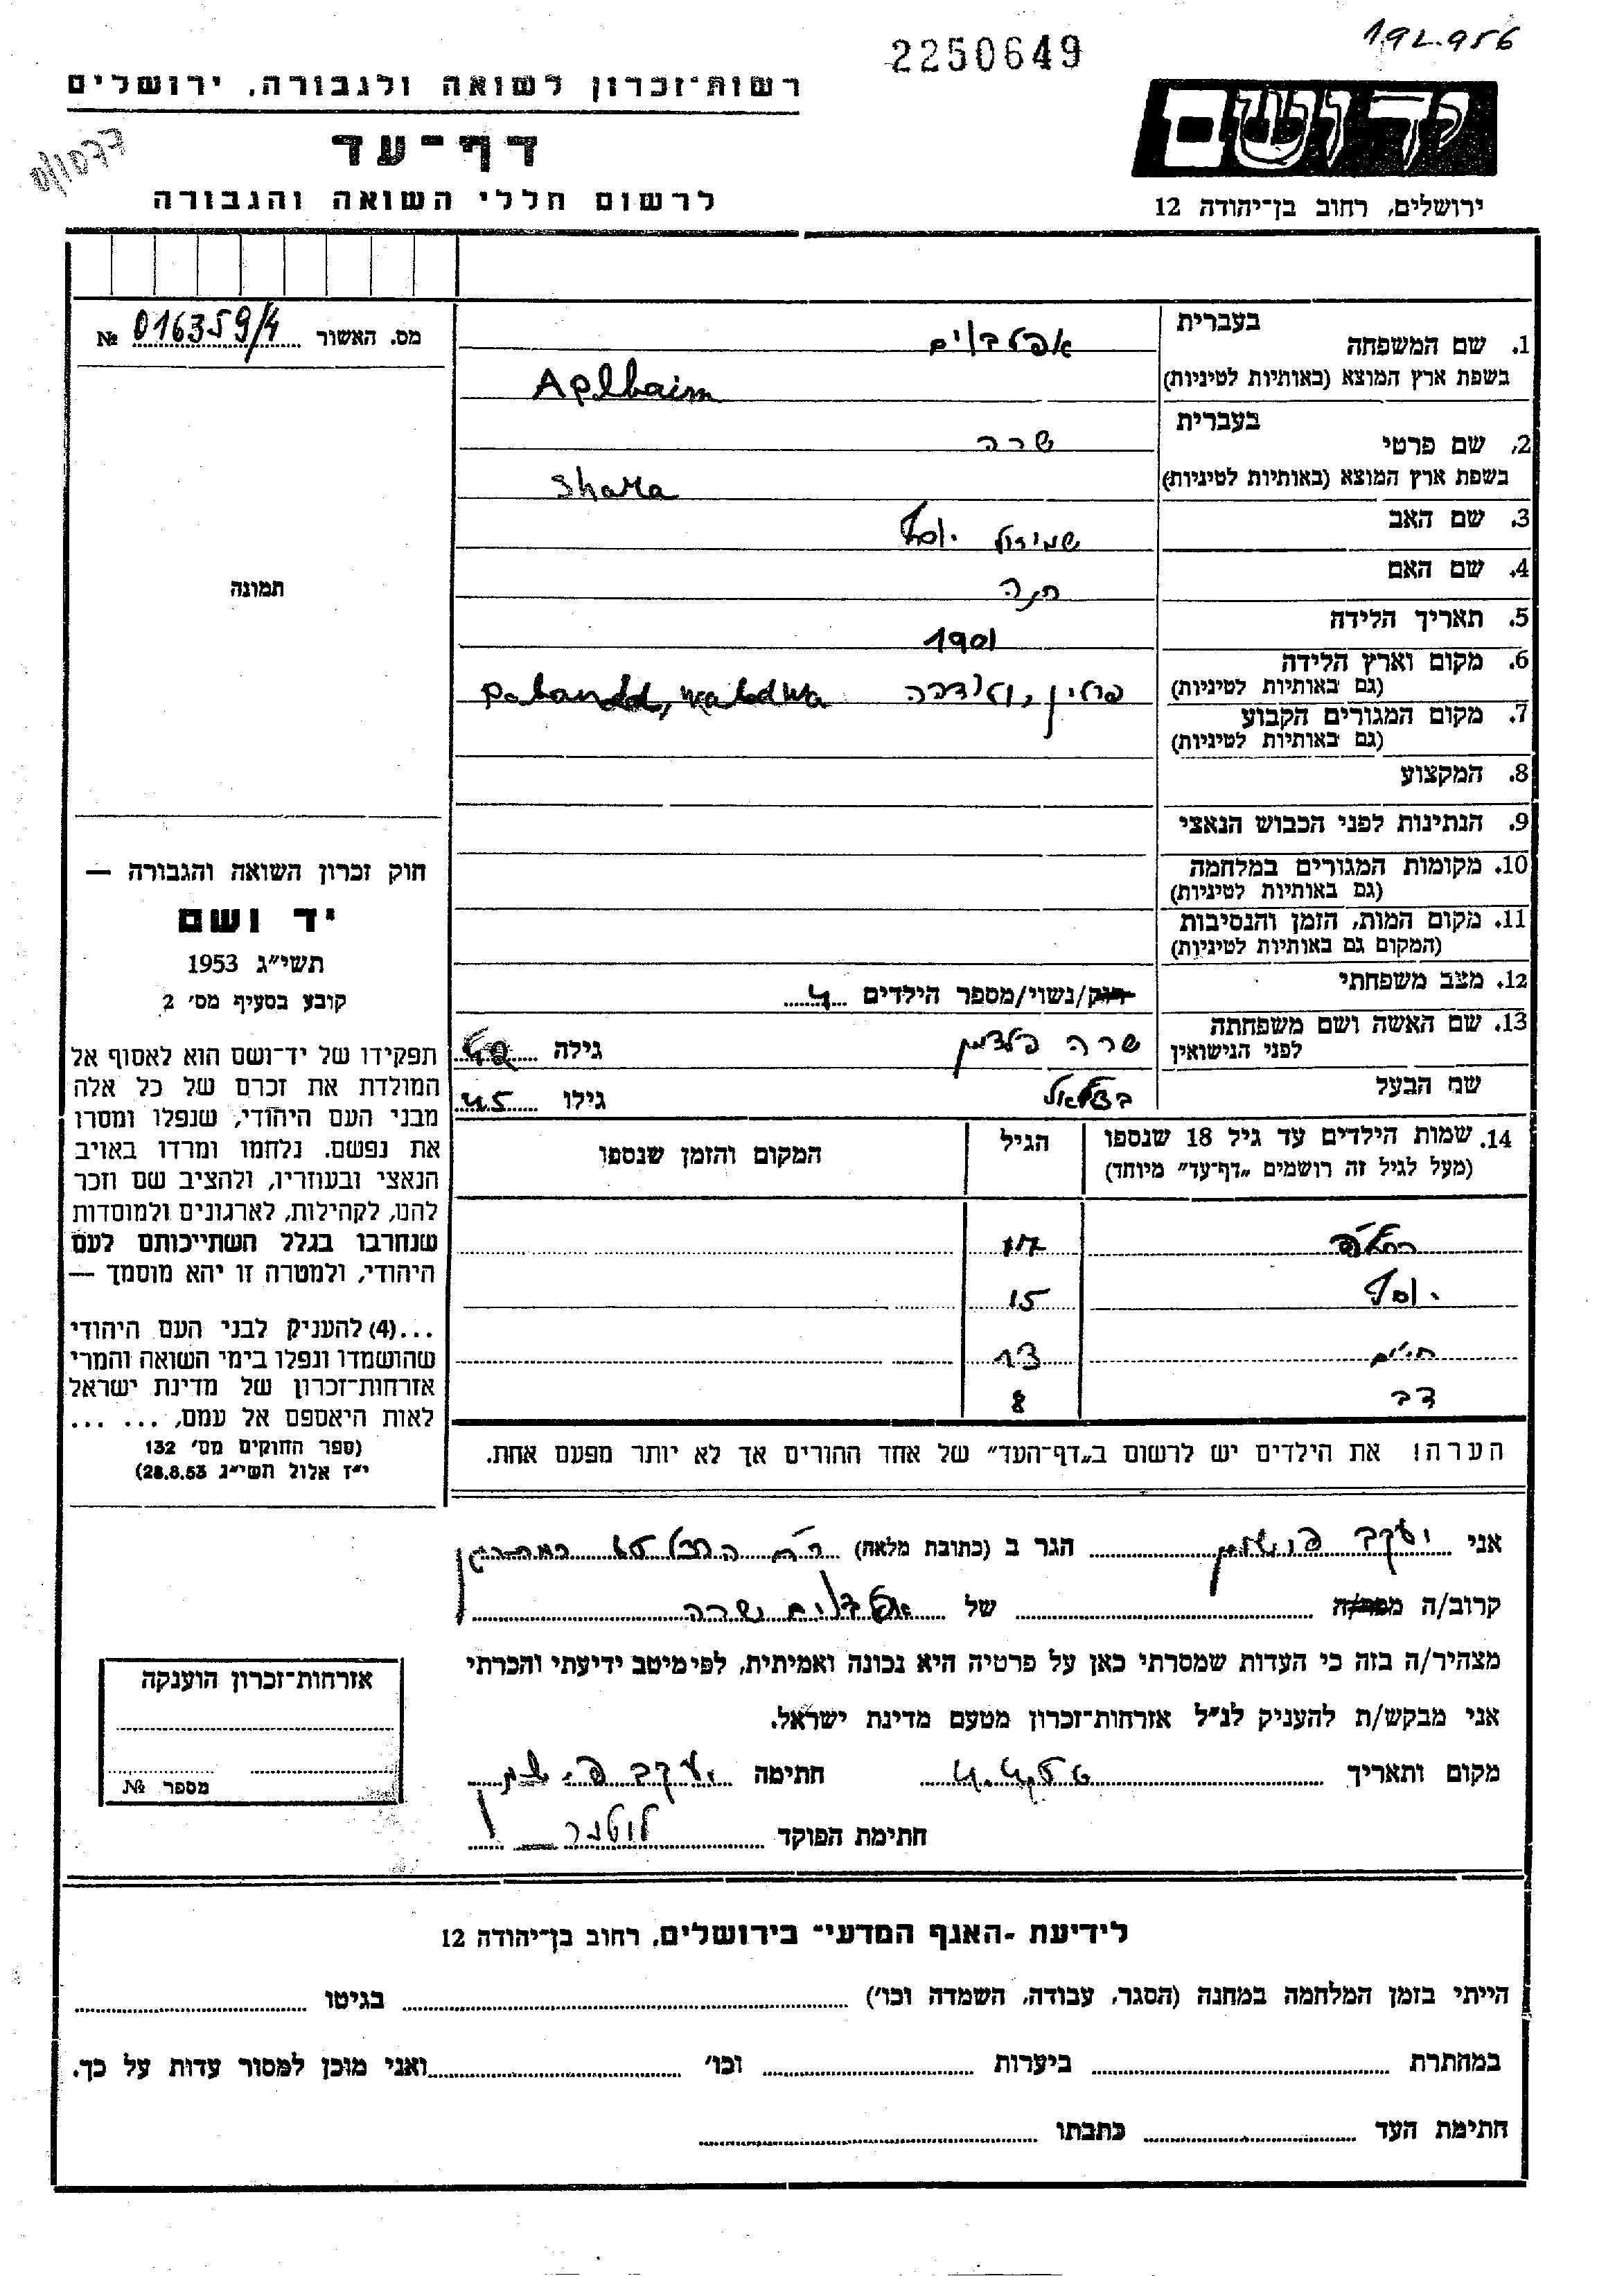 192.956
2250649
רשות־זכרון לשואה ולגבורה, ירושלים
יד ושם
דף־עד
0/1077
לרשום חללי השואה והגבורה
ירושלים, רחוב בן־יהודה 12
מס. האשור № 016359/4
בעברית
1. שם המשפחה אפלבוים
בשפת ארץ המוצא (באותיות לטיניות) Aplbaim
בעברית
2. שם פרטי שרה
בשפת ארץ המוצא (באותיות לטיניות) Shara
3. שם האב שמואל יוסף
4. שם האם חנה
5. תאריך הלידה 1901
6. מקום וארץ הלידה
(גם באותיות לטיניות) פולין,
7. מקום המגורים הקבוע
(גם באותיות לטיניות)
8. המקצוע
9. הנתינות לפני הכבוש הנאצי
10. מקומות המגורים במלחמה
(גם באותיות לטיניות)
11. מקום המות, הזמן והנסיבות
(המקום גם באותיות לטיניות)
12. מצב משפחתי רווק/נשוי/מספר הילדים 4
13. שם האשה ושם משפחתה
לפני הנישואין שרה פלדמן גילה 42
שם הבעל בצלאל גילו 45
14. שמות הילדים עד גיל 18 שנספו
(מעל לגיל זה רושמים „דף־עד״ מיוחד)
הגיל
המקום והזמן שנספו
17
יוסף 15
חיים 13
דב 8
הערה! את הילדים יש לרשום ב„דף־העד״ של אחד ההורים אך לא יותר מפעם אחת.
תמונה
חוק זכרון השואה והגבורה —
יד ושם
תשי״ג 1953
קובע בסעיף מס׳ 2
תפקידו של יד־ושם הוא לאסוף אל
המולדת את זכרם של כל אלה
מבני העם היהודי, שנפלו ומסרו
את נפשם. נלחמו ומרדו באויב
הנאצי ובעוזריו, ולהציב שם וזכר
להם, לקהילות, לארגונים ולמוסדות
שנחרבו בגלל השתייכותם לעם
היהודי, ולמטרה זו יהא מוסמך —
...(4) להעניק לבני העם היהודי
שהושמדו ונפלו בימי השואה והמרי
אזרחות־זכרון של מדינת ישראל
לאות היאספם אל עמם, ... ...
(ספר החוקים מס׳ 132
י״ז אלול תשי״ג 28.8.53)
אני יעקב הגר ב (כתובת מלאה)
קרוב/ה מכר/ה של אפלבוים שרה
מצהיר/ה בזה כי העדות שמסרתי כאן על פרטיה היא נכונה ואמיתית, לפי מיטב ידיעתי והכרתי
אני מבקש/ת להעניק לנ״ל אזרחות־זכרון מטעם מדינת ישראל.
מקום ותאריך חתימה יעקב
חתימת הפוקד
אזרחות־זכרון הוענקה
מספר №
לידיעת ־האגף המדעי־ בירושלים, רחוב בן־יהודה 12
הייתי בזמן המלחמה במחנה (הסגר, עבודה, השמדה וכו׳) בגיטו
במחתרת ביערות וכו׳ ואני מוכן למסור עדות על כך.
חתימת העד כתבתו